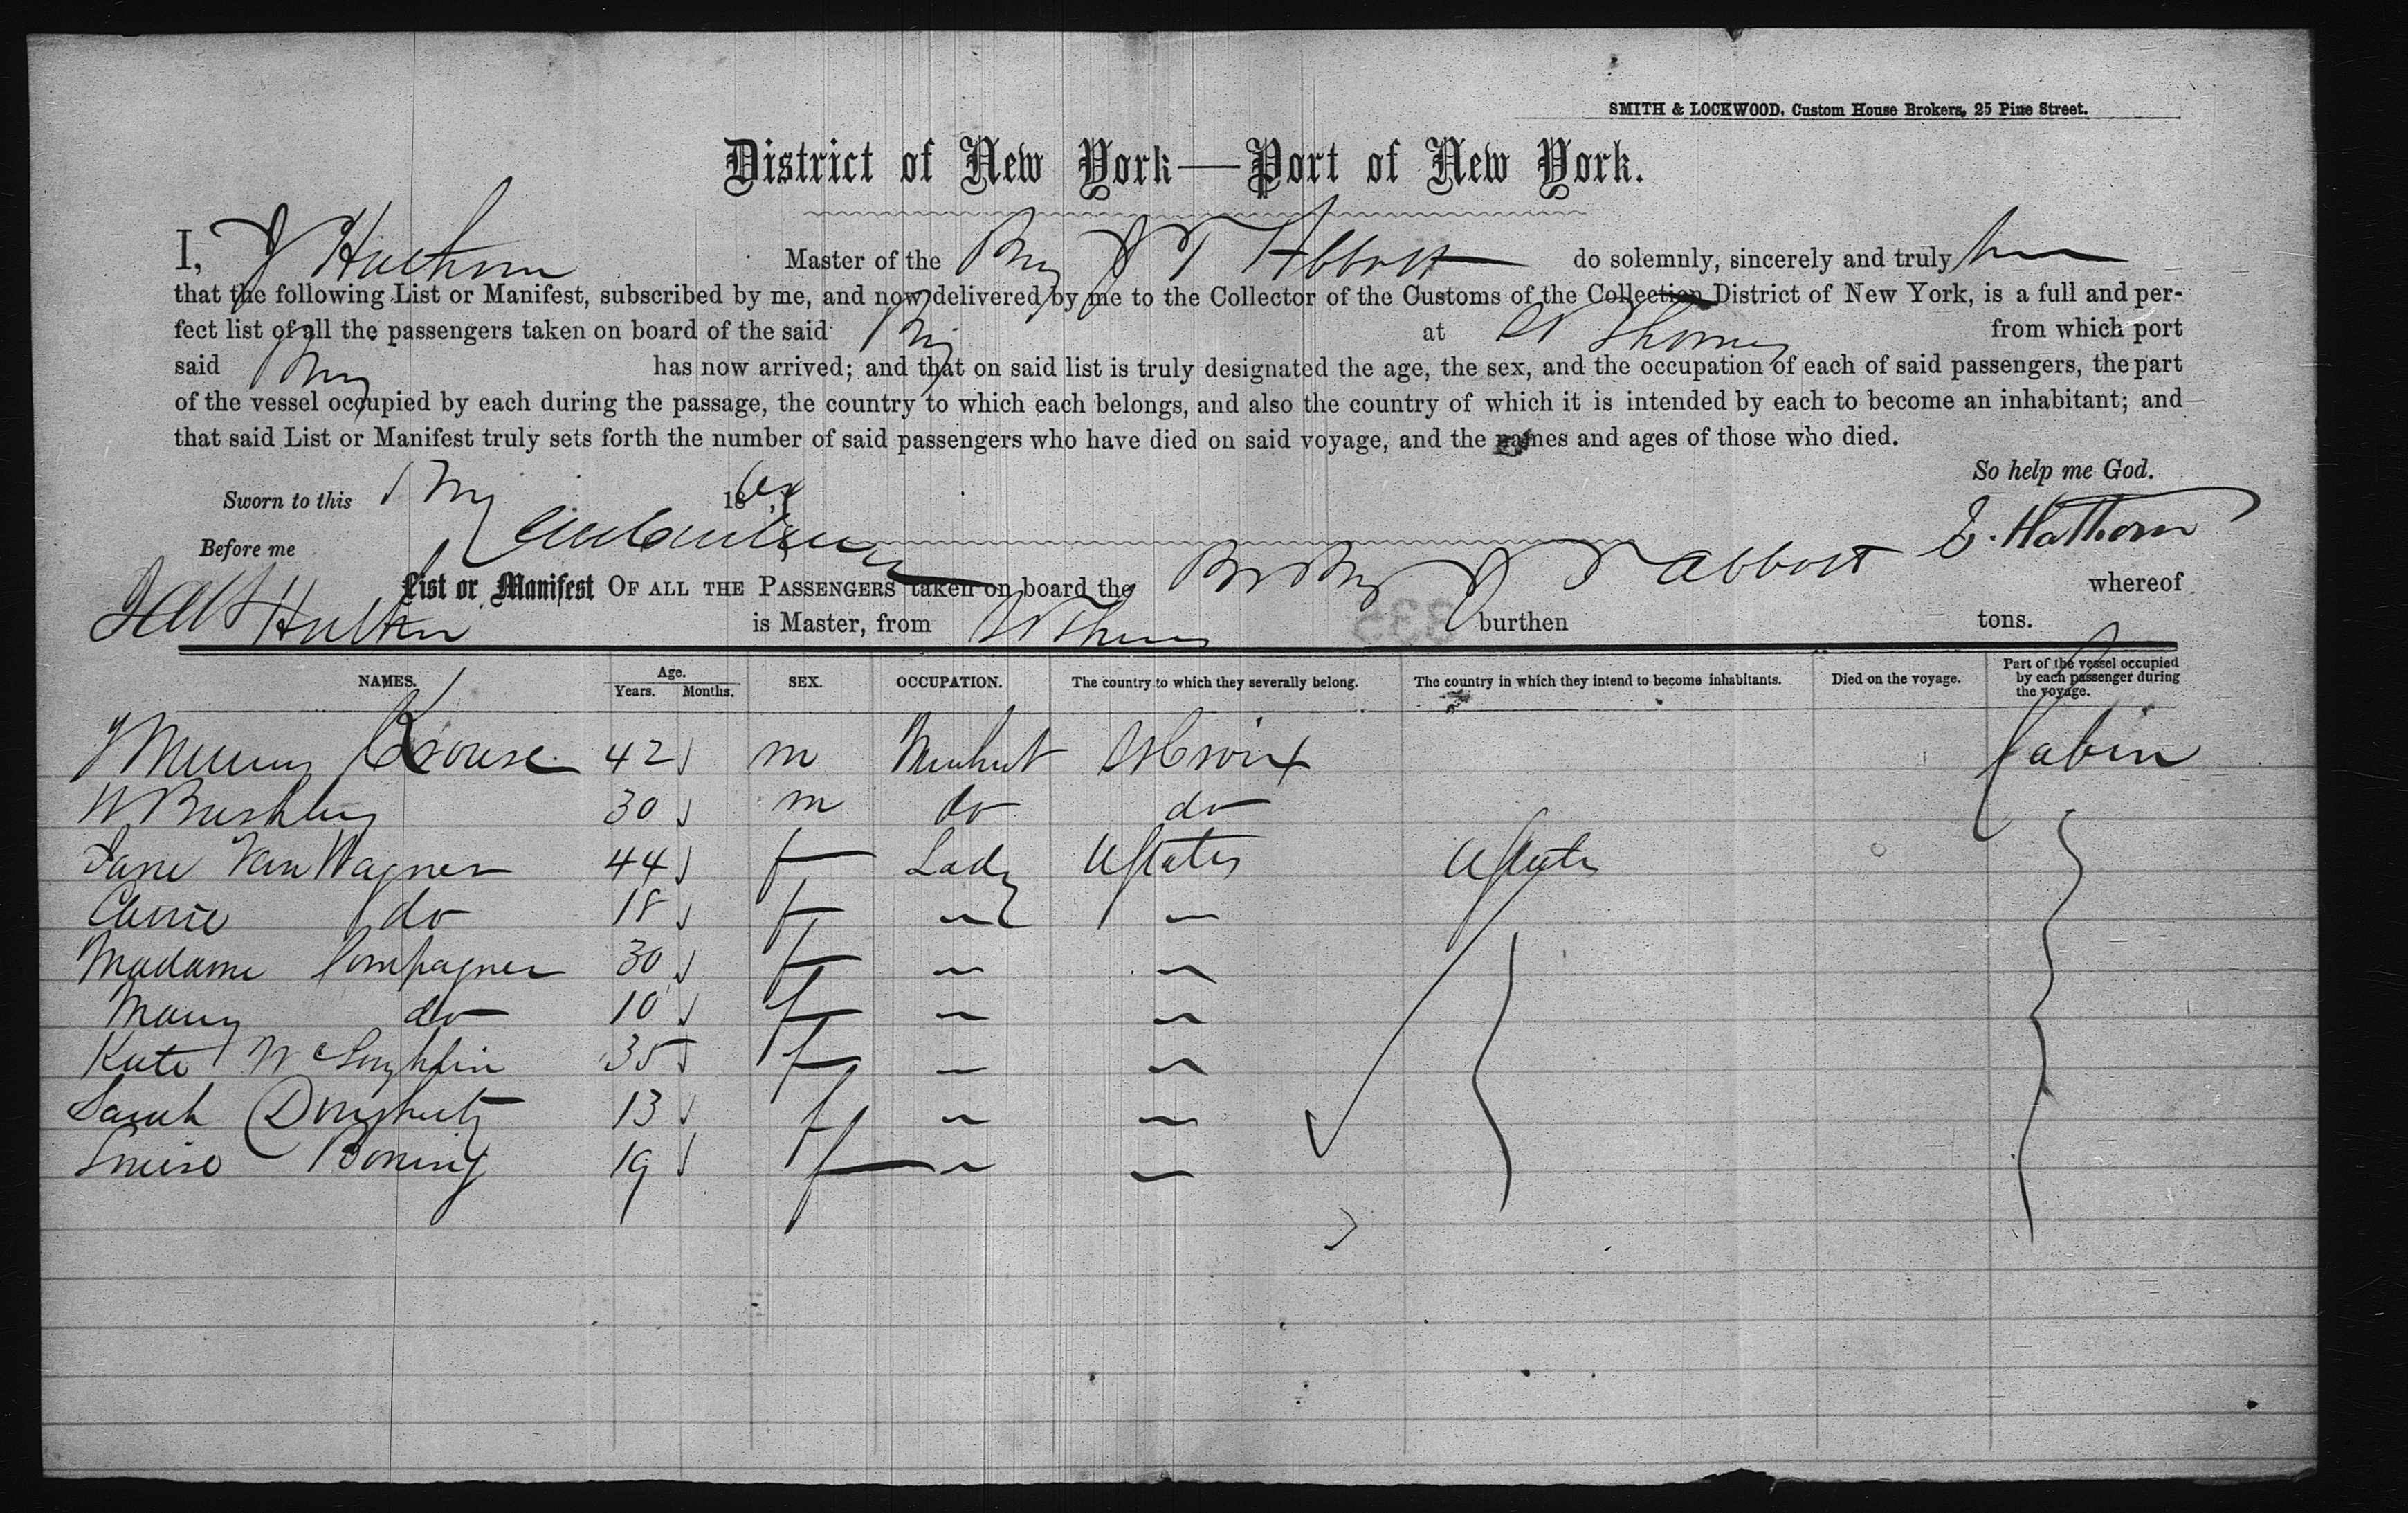 SMITH & LOCKWOOD, Custom House Brokers, 25 Pine Street.
District of New York—Port of New York.
I, J Hathorn Master of the Brig J T Abbott do solemnly, sincerely and truly
that the following List or Manifest, subscribed by me, and now delivered by me to the Collector of the Customs of the Collection District of New York, is a full and per-
fect list of all the passengers taken on board of the said Brig at St Thomas from which port
said Brig has now arrived; and that on said list is truly designated the age, the sex, and the occupation of each of said passengers, the part
of the vessel occupied by each during the passage, the country to which each belongs, and also the country of which it is intended by each to become an inhabitant; and
that said List or Manifest truly sets forth the number of said passengers who have died on said voyage, and the names and ages of those who died.
So help me God.
Sworn to this 18
E. Hathorn
Before me
List or Manifest OF ALL THE PASSENGERS taken on board the Br Brig J T Abbott whereof
is Master, from St Thomas burthen tons.
335
NAMES. Age. Years. Months. SEX. OCCUPATION. The country to which they severally belong. The country in which they intend to become inhabitants. Died on the voyage. Part of the vessel occupied by each passenger during the voyage.
Krouse 42 m Merchant St Croix Cabin
W Bushby 30 m do do
Jane Van Wagner 44 f Lady U States U States
Carrie do 18 f
Madame Compagner 30 f
Mary do 10 f
Kate McLoughlin 35 f
Sarah Dougherty 13 f
Louise Boning 19 f